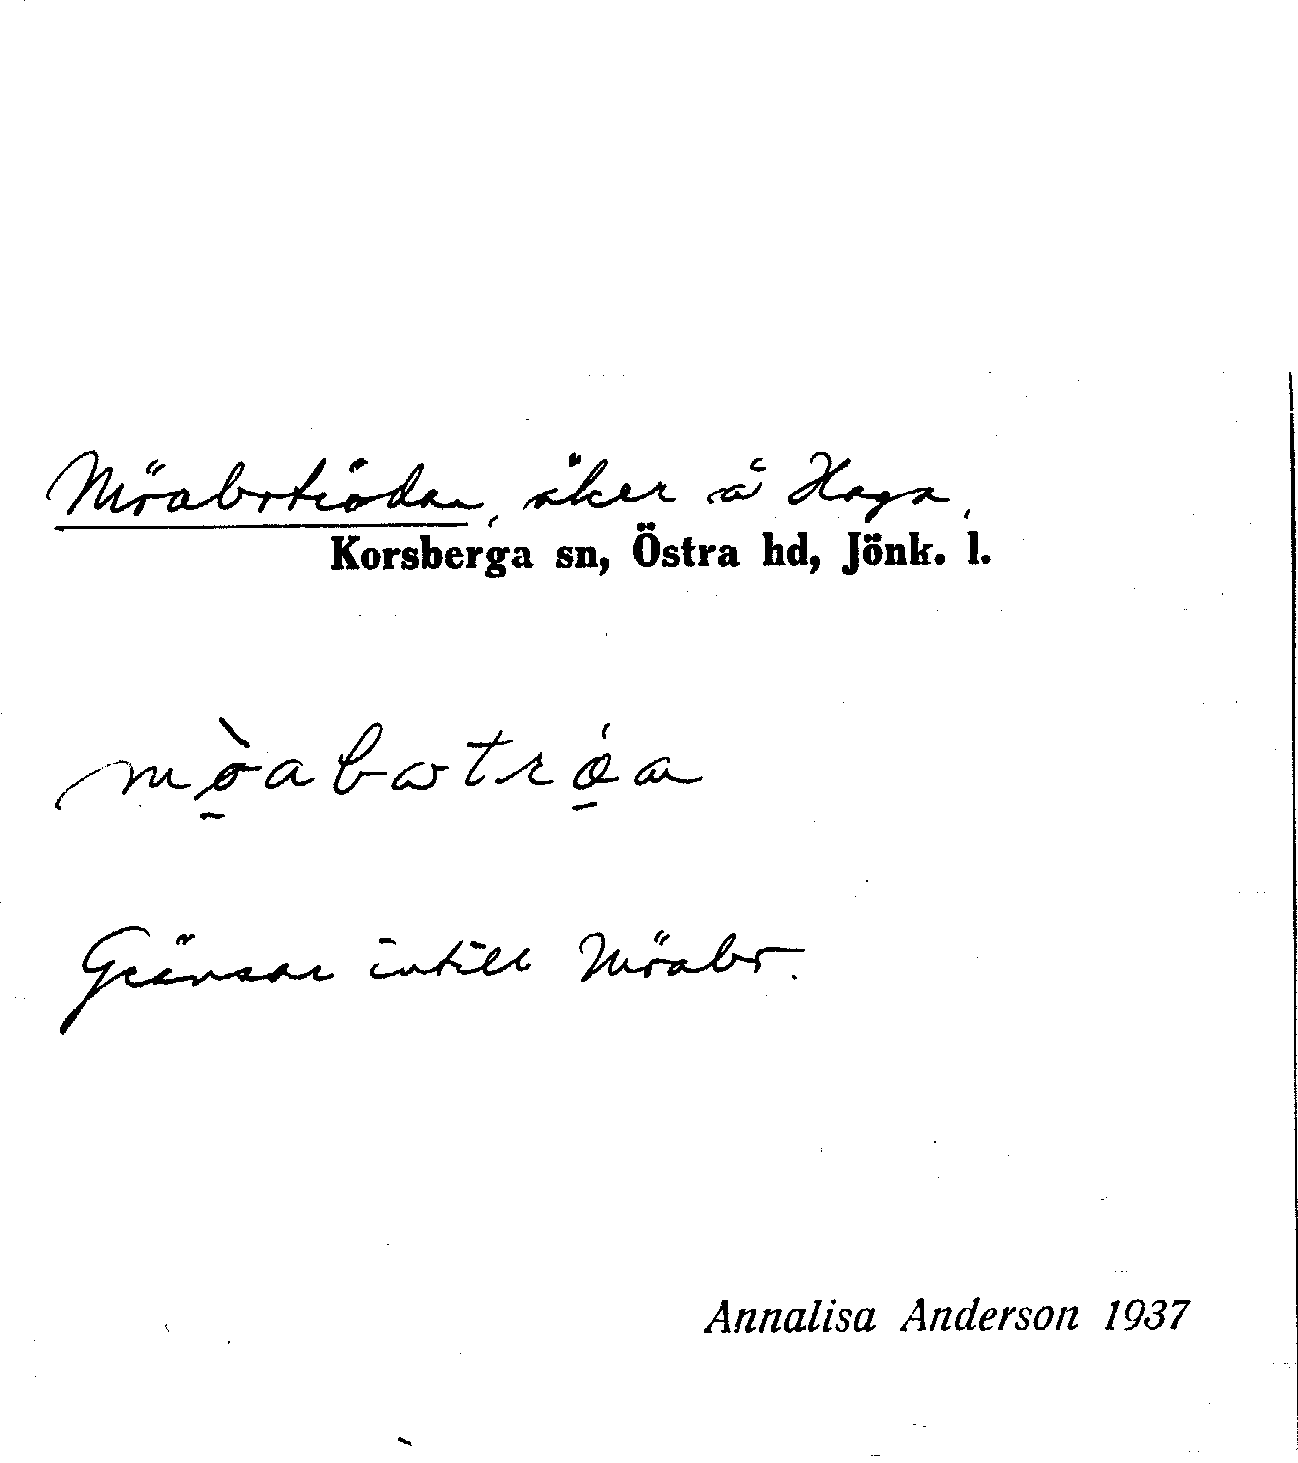 Möaboträdan, åker å Haga,
Korsberga sn, Östra hd, Jönk. l.
Gränsar intill Möabo.
Annalisa Anderson 1937